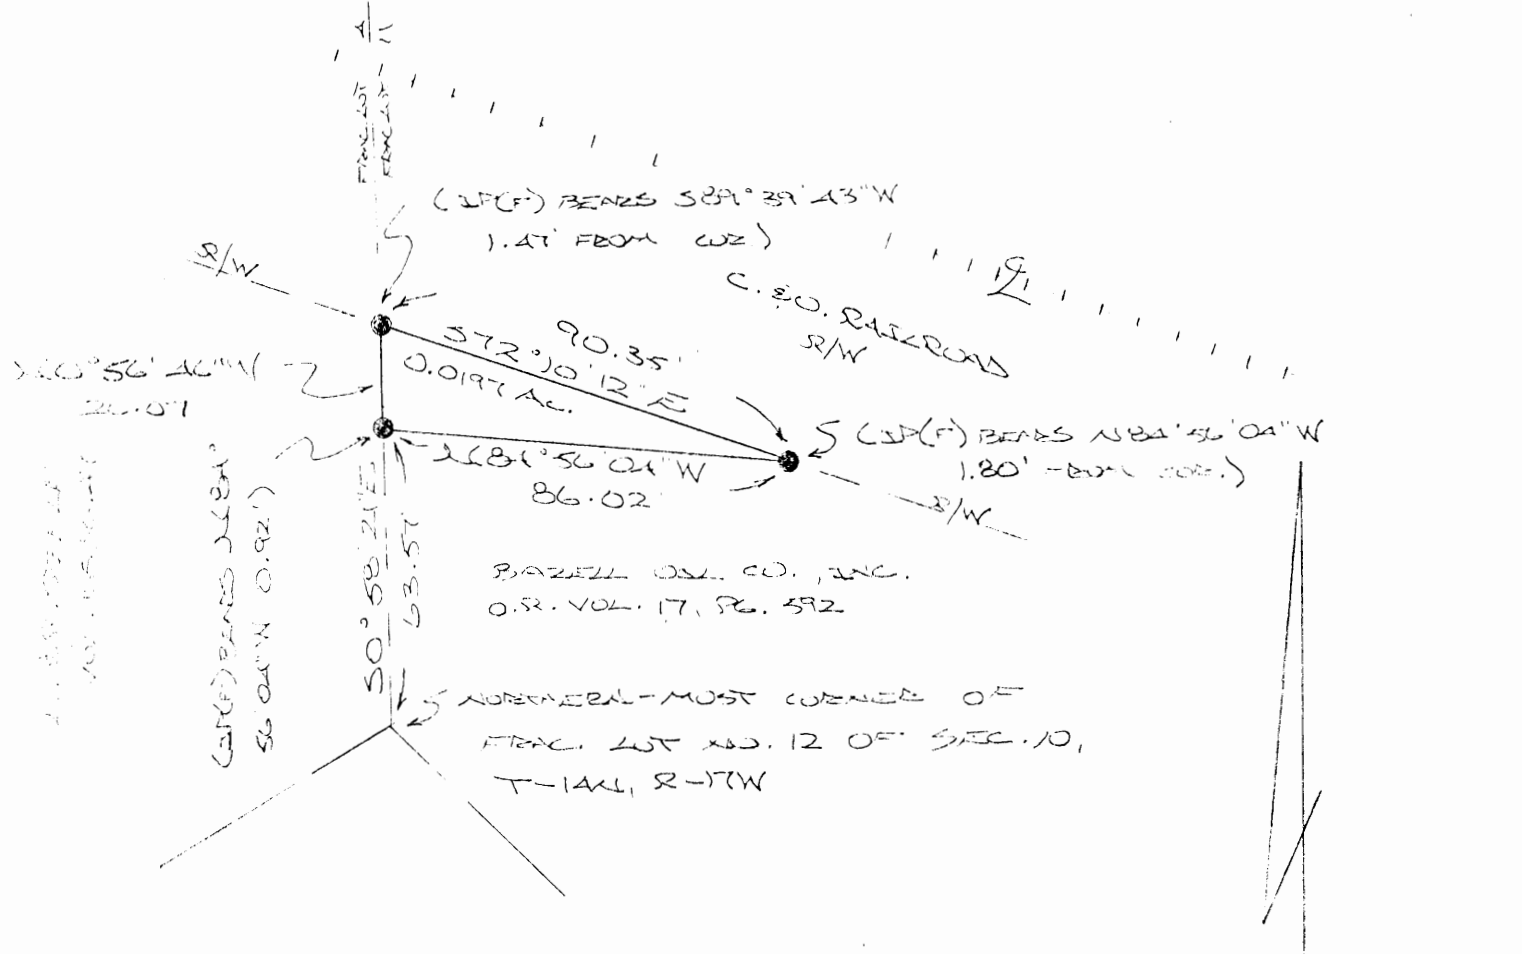 FRAC. LOT
FRAC. LOT 11
(IP(F) BEARS S89°39'43"W
1.47' FROM COR.)
R/W
℄
C. & O. RAILROAD
R/W
90.35'
S72°10'12"E
0.0197 Ac.
N0°56'46"W
26.07
(IP(F) BEARS N84°56'04"W
1.80' FROM COR.)
N84°56'04"W
86.02'
R/W
(IP(F) BEARS N84°
56'04"W 0.92')
S0°58'21"E
63.57'
BAZELL OIL CO., INC.
O.R. VOL. 17, PG. 592
NORTHERN-MOST CORNER OF
FRAC. LOT NO. 12 OF SEC. 10,
T-14N, R-17W